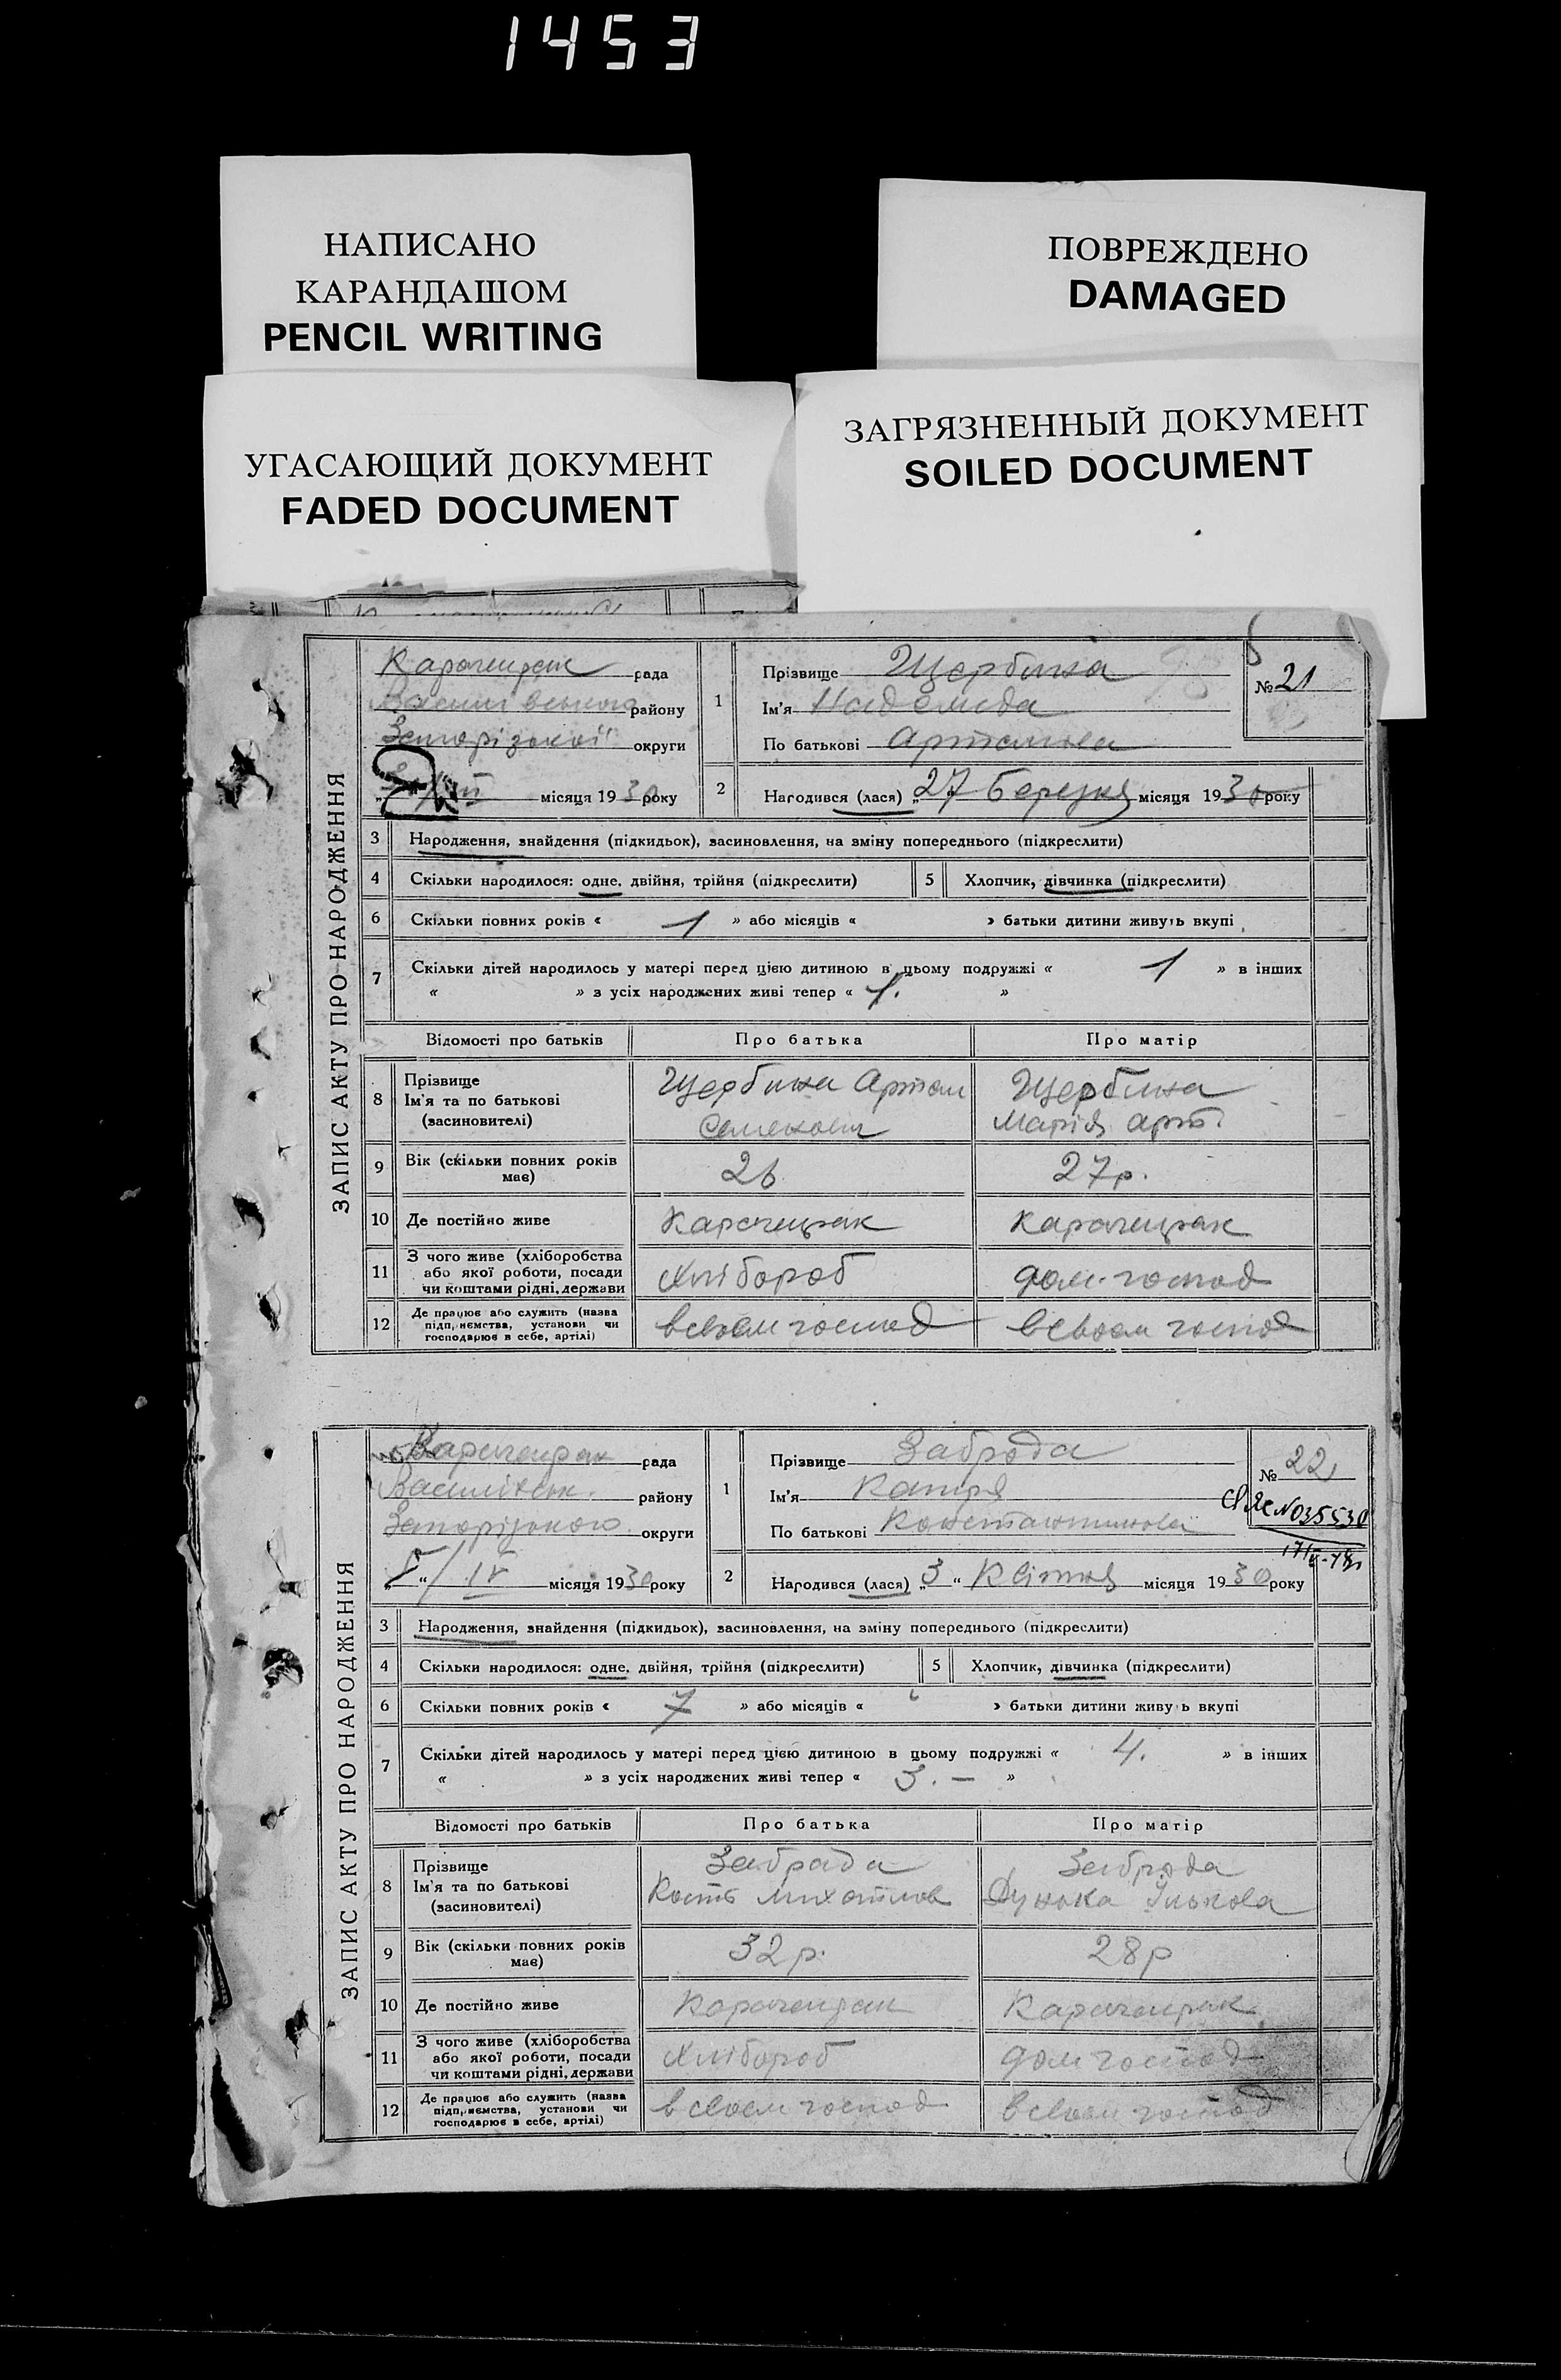 1453
НАПИСАНО
КАРАНДАШОМ
PENCIL WRITING
ПОВРЕЖДЕНО
DAMAGED
УГАСАЮЩИЙ ДОКУМЕНТ
FADED DOCUMENT
ЗАГРЯЗНЕННЫЙ ДОКУМЕНТ
SOILED DOCUMENT
ЗАПИС АКТУ ПРО НАРОДЖЕННЯ
рада
району
Запорізької округи
місяця 1930 року
1 Прізвище Щербина
Ім'я Надежда
По батькові Артемова
№ 21
2 Народився (лася) „27 Березня місяця 1930 року
3 Народження, знайдення (підкидьок), засиновлення, на зміну попереднього (підкреслити)
4 Скільки народилося: одне, двійня, трійня (підкреслити) 5 Хлопчик, дівчинка (підкреслити)
6 Скільки повних років « 1 » або місяців « » батьки дитини живуть вкупі
7 Скільки дітей народилось у матері перед цією дитиною в цьому подружжі « 1 » в інших
« » з усіх народжених живі тепер « 1. »
Відомості про батьків Про батька Про матір
8 Прізвище
Ім'я та по батькові
(засиновителі)
Щербина Артем
Семенович
Щербина
Марія Арт.
9 Вік (скільки повних років
має)
26
27р.
10 Де постійно живе Карачекрак Карачекрак
11 З чого живе (хліборобства
або якої роботи, посади
чи коштами рідні, держави
Хлібороб
дом. господ
12 Де працює або служить (назва
підприємства, установи чи
господарює в себе, артілі)
в своем господ
в своем господ
ЗАПИС АКТУ ПРО НАРОДЖЕННЯ
Карачекрак рада
Василівськ. району
Запорізького округи
„5“/IV місяця 1930 року
1 Прізвище Заброда
Ім'я Катря
По батькові Константинова
№ 22
N035530
2 Народився (лася) „3“ Квітня місяця 1930 року
3 Народження, знайдення (підкидьок), засиновлення, на зміну попереднього (підкреслити)
4 Скільки народилося: одне, двійня, трійня (підкреслити) 5 Хлопчик, дівчинка (підкреслити)
6 Скільки повних років « 7 » або місяців « » батьки дитини живу ь вкупі
7 Скільки дітей народилось у матері перед цією дитиною в цьому подружжі « 4. » в інших
« » з усіх народжених живі тепер « 3. — »
Відомості про батьків Про батька Про матір
8 Прізвище
Ім'я та по батькові
(засиновителі)
Заброда
Кость Михайлов
Заброда
Дунька Ількова
9 Вік (скільки повних років
має)
32 р.
28 р
10 Де постійно живе Карачекрак Карачекрак
11 З чого живе (хліборобства
або якої роботи, посади
чи коштами рідні, держави
Хлібороб
дом господ
12 Де працює або служить (назва
підприємства, установи чи
господарює в себе, артілі)
в своем господ
в своем господ